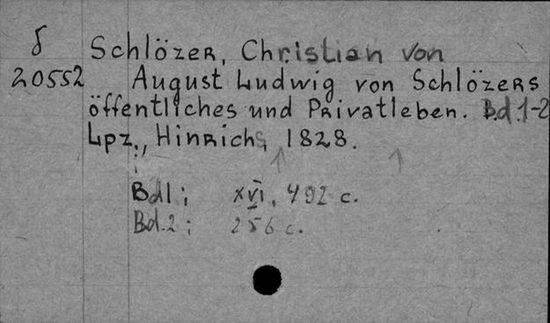 δ Schlözer, Christian von
20552 August Ludwig von Schlözers
öffentliches und Privatleben. Bd.1-2
Lpz., Hinrichs, 1828.
Bd1; XVI, 492 c.
Bd.2; 256 c.